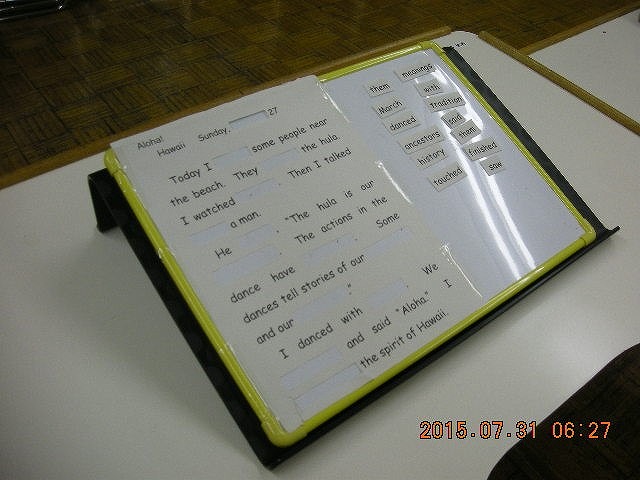 Aloha!
Hawaii Sunday, 27
Today I some people near
the beach. They the hula.
I watched . Then I talked
a man.
He . "The hula is our
. The actions in the
dance have . Some
dances tell stories of our
and our ."
I danced with . We
and said "Aloha." I
the spirit of Hawaii.
them meanings
March with
tradition
danced said
ancestors them
history finished
touched saw
2015.07.31 06:27